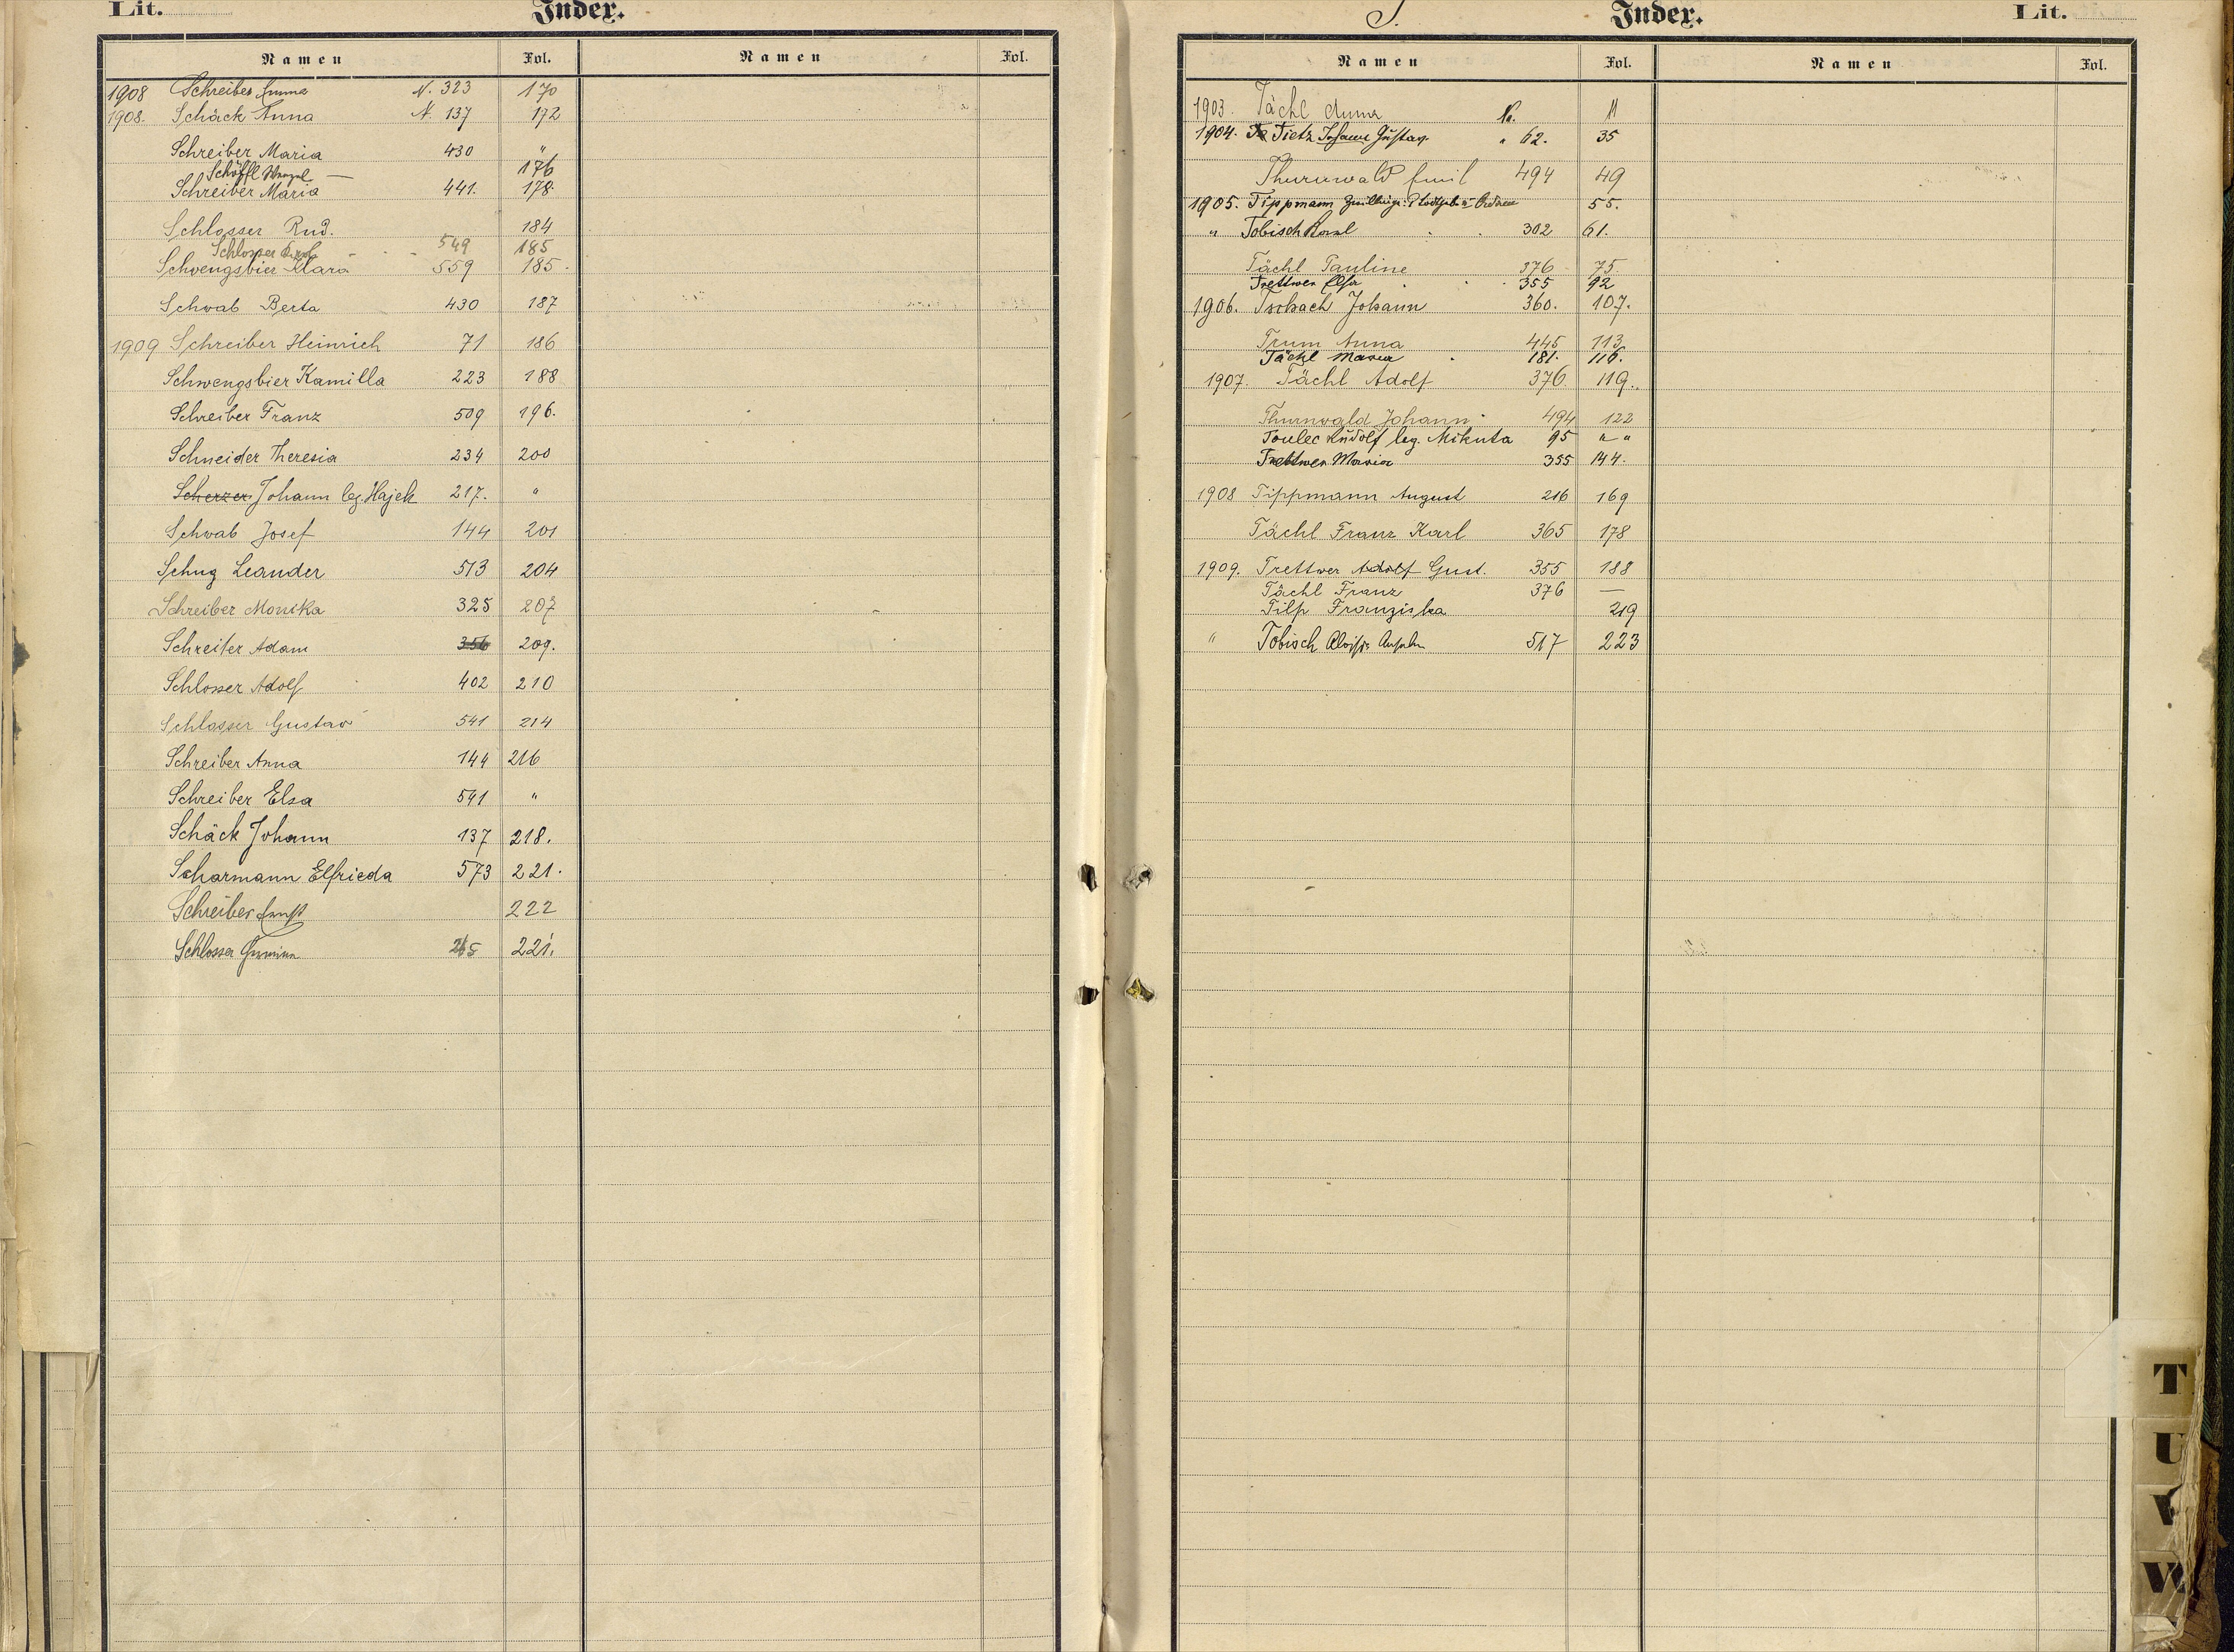 Lit. Index.
Namen Fol. Namen Fol.
1908 Schreiber Emma N. 323 170
1908. Schäck Anna N. 137 172
Schreiber Maria 430 "
Schöffl Wenzel — 176
Schreiber Maria 441. 178.
Schlosser Rud. 184
Schlosser 549 185
Schwengsbier Klara 559 185.
Schwab Berta 430 187
1909 Schreiber Heinrich 71 186
Schwengsbier Kamilla 223 188
Schreiber Franz 509 196.
Schneider Theresia 234 200
Scherzer Johann leg. Hajek 217. "
Schwab Josef 144 201
Schug Leander 513 204
Schreiber Monika 325 207
Schreiter Adam 356 209.
Schlosser Adolf 402 210
Schlosser Gustav 541 214
Schreiber Anna 144 216
Schreiber Elsa 541 "
Schäck Johann 137 218.
Scharmann Elfrieda 573 221.
Schreiber Ernst 222
Schlosser 221.
T. Index. Lit.
Namen Fol. Namen Fol.
1903. Tächl Anna No. 11
1904. Tietz Johann Gustav " 62. 35
Thurnwald Emil 494 49
1905. Tippmann 55.
" Tobisch Karl 302 61.
Tächl Pauline 376 75
Trettwer Elsa 355 92
1906. Tschach Johann 360. 107.
Trum Anna 445 113
Tächl Maria 181. 116.
1907. Tächl Adolf 376 119.
Thurnwald Johann 494 122
Toulec Rudolf leg. Mikuta 95 " "
Trettwer Maria 355 144.
1908 Tippmann August 216 169
Tächl Franz Karl 365 178
1909. Trettwer Adolf Gust. 355 188
Tächl Franz 376 —
Tilp Franziska 219
" Tobisch Aloisia 517 223
T
U
V
W